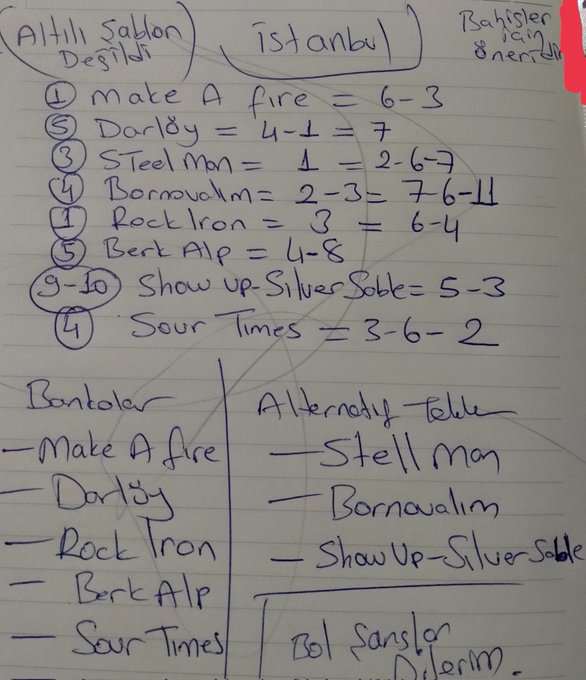 Altılı Şablon
Değildi
İstanbul
Bahisler
için
öneridir
① Make A fire = 6-3
⑤ Darlöy = 4-1 = 7
③ STeel Man = 1 = 2-6-7
④ Bornovalım = 2-3 = 7-6-11
① Rock Iron = 3 = 6-4
⑤ Berk Alp = 4-8
9-10 Show Up-Silver Sable = 5-3
④ Sour Times = 3-6-2
Bankolar
- Make A fire
- Darlöy
- Rock Iron
- Berk Alp
- Sour Times
Alternatif Tekler
- Stell Man
- Bornovalım
- Show Up-Silver Sable
Bol Şanslar
Dilerim.